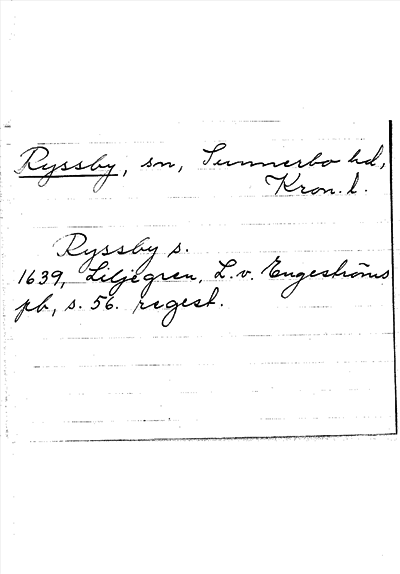 Ryssby, sn, Sunnerbo hd,
Kron. l.
Ryssby s.
1639, Liljegren, L. v. Engeströms
pb, s. 56. regest.